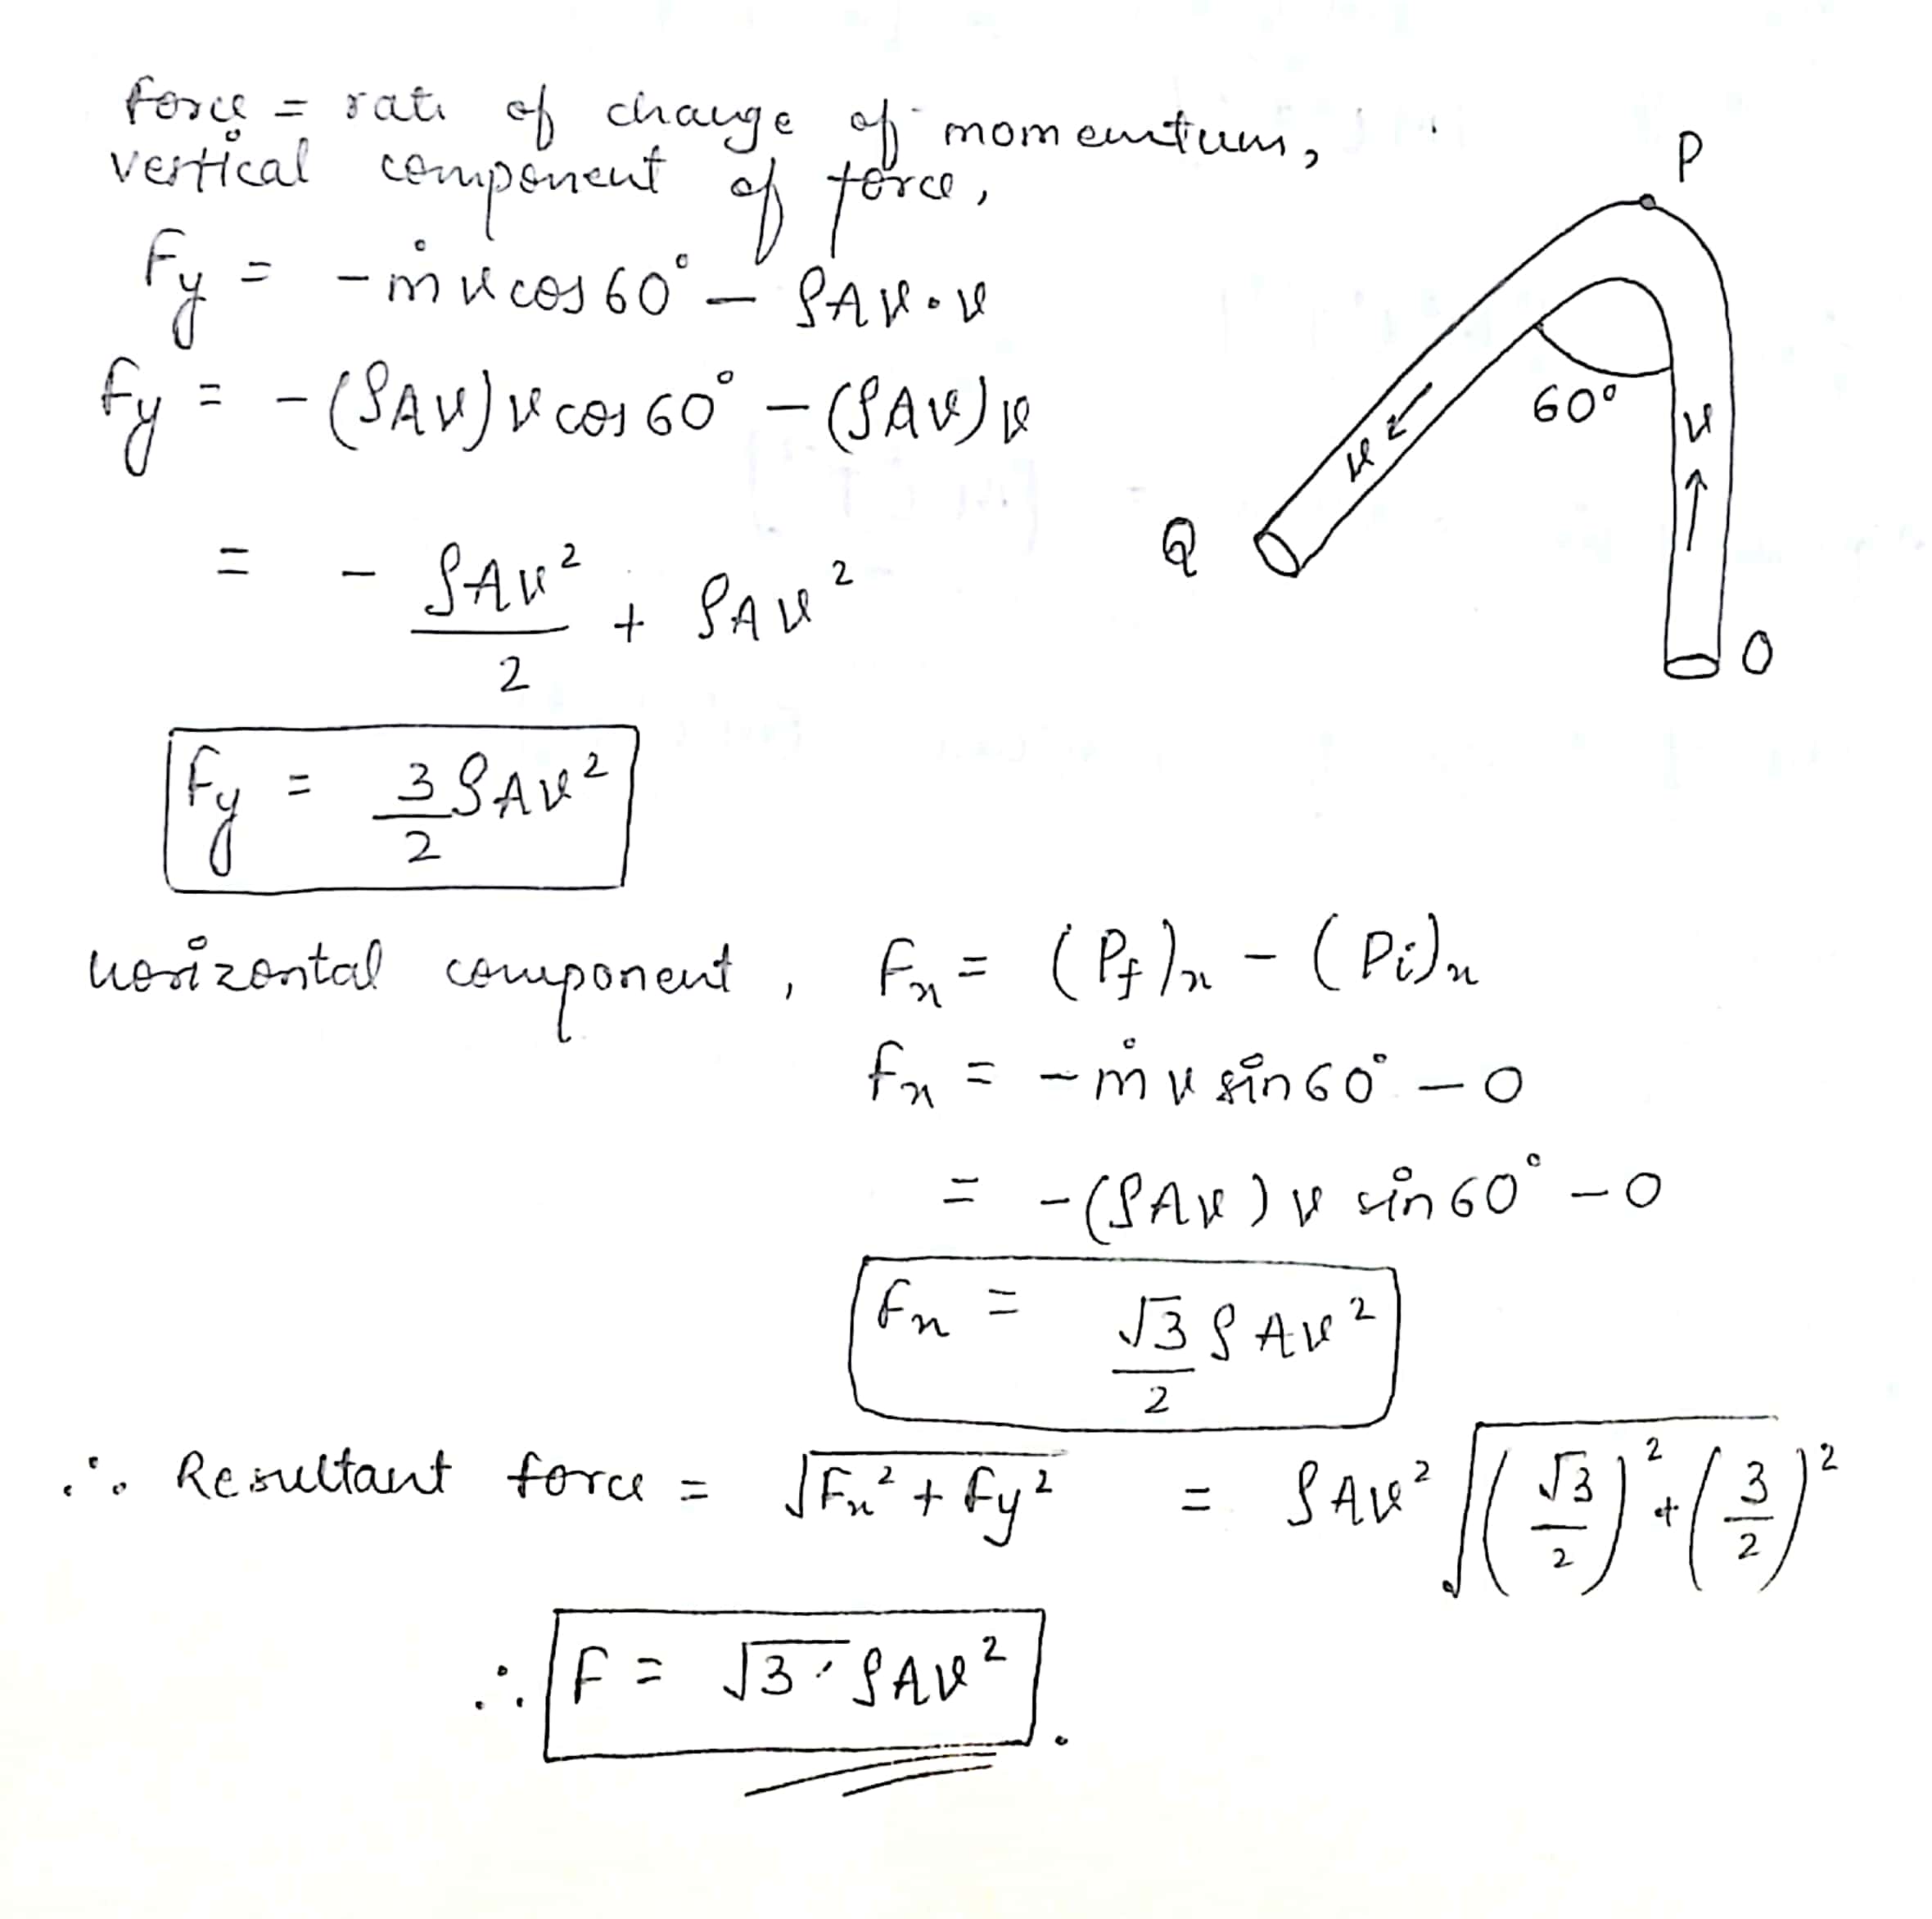 force = rate of change of momentum,
vertical component of force,
Fy = -ṁvcos60° - ρAv.v
Fy = -(ρAv)vcos60° - (ρAv)v
= - ρAv²/2 + ρAv²
Fy = 3/2 ρAv²
horizontal component, Fx = (Pf)x - (Pi)x
Fx = -ṁv sin60° - 0
= -(ρAv)v sin60° - 0
Fx = √3/2 ρAv²
∴ Resultant force = √Fx² + Fy² = ρAv² √(√3/2)² + (3/2)²
∴ F = √3 ρAv².
P
60°
v
v
Q
O